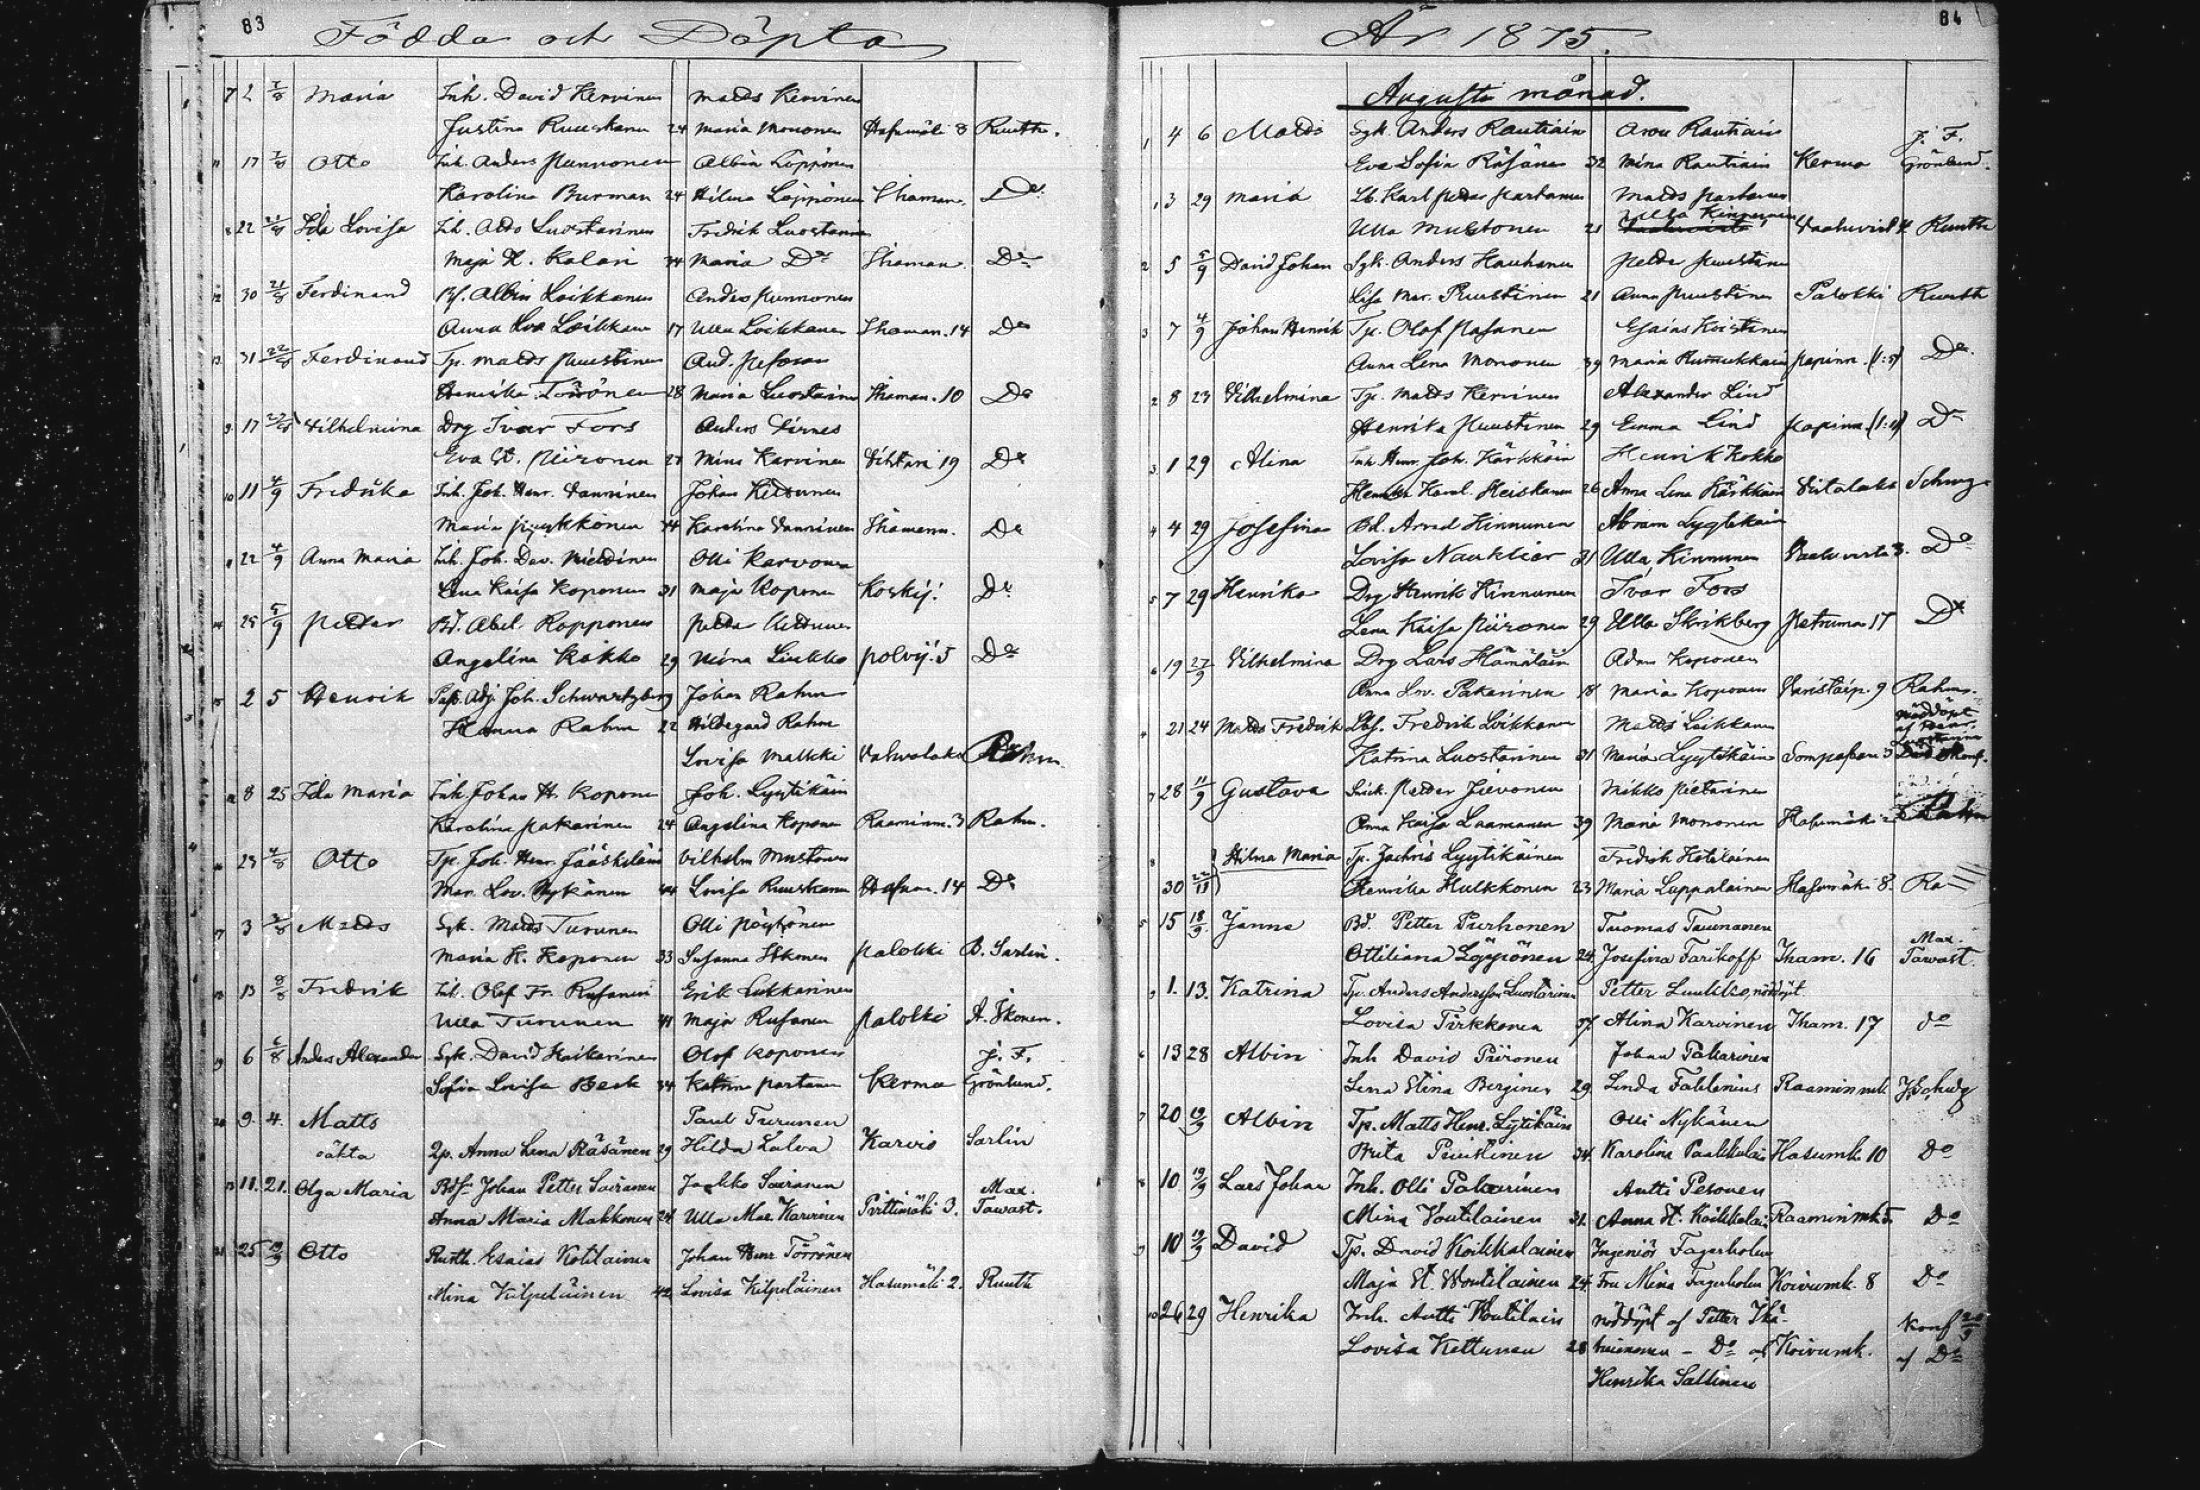 83
Födda och Döpta
7 2 7/8 Maria Inh. David Kervinen Matts Kervinen
Justina Ruuskanen 24 Maria Mononen Hasumäki 8 Ruuth.
17 7/8 Otto Inh. Anders Punnonen Albin Löppönen
Karolina Burman 24 Hilma Löppönen Thaman. Do
22 21/8 Ida Lovisa Inh. Adis Luostarinen Fredrik Luostarinen
Maja K. Kalari 34 Maria Do Thaman. Do
12 30 21/8 Ferdinand Bf. Albin Loikkanen Anders Punnonen
Anna Eva Loikkanen 17 Ulla Loikkanen Thaman. 14 Do
13 31 22/8 Ferdinand Tp. Matts Puustinen And. Pesonen
Henrika Törönen 28 Maria Luostarinen Thaman. 10 Do
9 17 22/8 Vilhelmina Drg Ivar Fors Anders Virnes
Eva St. Piironen 27 Mina Karvinen Vihtari 19 Do
10 11 4/9 Fredrika Inh. Joh. Henr. Vanninen Johan Kettunen
Maria Pyykkönen 44 Karolina Vanninen Thamann. Do
22 4/9 Anna Maria Inh. Joh. Dav. Miettinen Olli Karvonen
Lena Kaisa Koponen 31 Maja Koponen Koskij. Do
14 25 5/9 Petter Bd. Abel Kopponen Petter Kettunen
Angelina Kokko 29 Mina Liukko Polvij. 5 Do
15 2 5 Henrik Past. Adj. Joh. Schwartzberg Johan Rahm
Hanna Rahm 22 Hildegard Rahm
Lovisa Malkki Vahvalaks Rahm
8 25 Ida Maria Inh. Johan H. Koponen Joh. Lyytikäin
Karolina Pakarinen 24 Angelina Koponen Raaminm. 3 Rahm.
16 23 4/8 Otto Tp. Joh. Henr. Jääskeläin Vilhelm Mustonen
Mar. Lov. Nykänen 44 Lovisa Ruuskanen Hasum. 14 Do
17 3 3/8 Matts Sjk. Matts Turunen Olli Pöyhönen
Maria K. Koponen 33 Susanna Ikonen Palokki B. Sarlin.
18 13 8/8 Fredrik Inh. Olof Fr. Rusanen Erik Lukkarinen
Ulla Turunen 41 Maja Rusanen Palokki A. Ikonen.
19 6 6/8 Anders Alexander Sjk. David Haikarinen Olof Koponen J. F.
Sofia Lovisa Beck 34 Katrina Partanen Kerma Grönlund.
20 9. 4. Matts Paul Turunen
oäkta Qp. Anna Lena Räsänen 29 Hilda Lalva Karvio Sarlin
11. 21. Olga Maria Bdsn Johan Petter Sairanen Jaakko Sairanen Max.
Anna Maria Makkonen 24 Ulla Mar. Karvinen Pirttimäki 3. Tawast.
21 25 19/9 Otto Rusth. Esaias Kotilainen Johan Henr Törrönen
Mina Kilpeläinen 42 Lovisa Kilpeläinen Hasumäki 2. Ruuth
84
År 1875.
Augusti månad.
1 4 6 Matts Sjk. Anders Rautiain Aron Rautiain J. F.
Eva Sofia Räsänen 32 Mina Rautiain Kerma Grönlund.
1 3 29 Maria Lb. Karl Petter Partanen Matts Partanen
Ulla Kinnunen
Ulla Mustonen 21 Vaaluvirta 4 Ruuth
2 5 5/9 David Johan Sjk. Anders Hauhanen Petter Puustinen
Lisa Mar. Puustinen 21 Anna Puustinen Palokki Ruuth
3 7 4/9 Johan Henrik Tp. Olof Pasanen Esaias Koistinen
Anna Lena Mononen 39 Maria Rumukkain Papinn. (1:5) Do
2 8 23 Vilhelmina Tp. Matts Kervinen Alexander Lind
Henrika Puustinen 29 Emma Lind Papinn. Do
3 1 29 Alina Inh Henr. Joh. Kärkkäin Henrik Kokko
Henrika Karol. Heiskanen 26 Anna Lena Kärkkäin Viitalaks Schwzg
4 4 29 Josefina Bd. Arvid Kinnunen Abram Lyytikäin
Lovisa Nauklier 31 Ulla Kinnunen Vaaluvirta 3. Do
5 7 29 Henrika Drg Henrik Kinnunen Ivar Fors
Lena Kaisa Piironen 29 Ulla Skrikberg Petruma 17 Do
6 19 27/9 Vilhelmina Drg Lars Hämäläin Adam Koponen
Anna Lov. Pakarinen 18 Maria Koponen Varistaip. 9 Rahm.
21 24 Matts Fredrik Lbf. Fredrik Loikkanen Matts Loikkanen nöddöpt
Katrina Luostarinen 31 Maria Lyytikäin Sompasaari 3
7 28 11/9 Gustava Inh. Petter Jievonen Mikko Pietarinen
Anna Kaisa Laamanen 39 Maria Mononen Hasumäki Rahm
8 Hilma Maria Tp. Zachris Lyytikäinen Fredrik Kotilainen
30 Henrika Hulkkonen 23 Maria Lappalainen Hasumäki 8.
5 15 18/9 Janna Bd. Petter Purhonen Tuomas Taurianen Max.
Ottiliana Löppönen 24. Josefina Tarikoff Tham. 16 Tawast.
9 1. 13. Katrina Tp. Anders Andersson Luostarinen Petter Luukko, nöddöpt
Lovisa Tirkkonen 37 Alina Karvinen Tham. 17 do
6 13 28 Albin Inh David Piironen Johan Pakarinen
Lena Stina Berginer 29. Linda Fablenius Raaminmk. J. Schwzg
7 20 19/9 Albin Tp. Matts Henr. Lytikäin Olli Nykänen
Brita Puistinen 34. Karolina Paakkulain Hasumk. 10 Do
8 10 19/9 Lars Johan Inh. Olli Pakarinen Antti Pesonen
Mina Voutilainen 31. Anna St. Koikkalain Raaminmk. 5 Do
9 10 19/9 David Tp. David Koikkalainen Ingeniör Fagerholm
Maja St. Woutilainen 24. Fru Mina Fagerholm Koivumk. 8 Do
10 26 29 Henrika Inh. Antti Woutilain nöddöpt af Petter Ikä- konf 20/9
Lovisa Kettunen 28 heimonen – Do af Koivumk. af Do
Henrika Sallinen